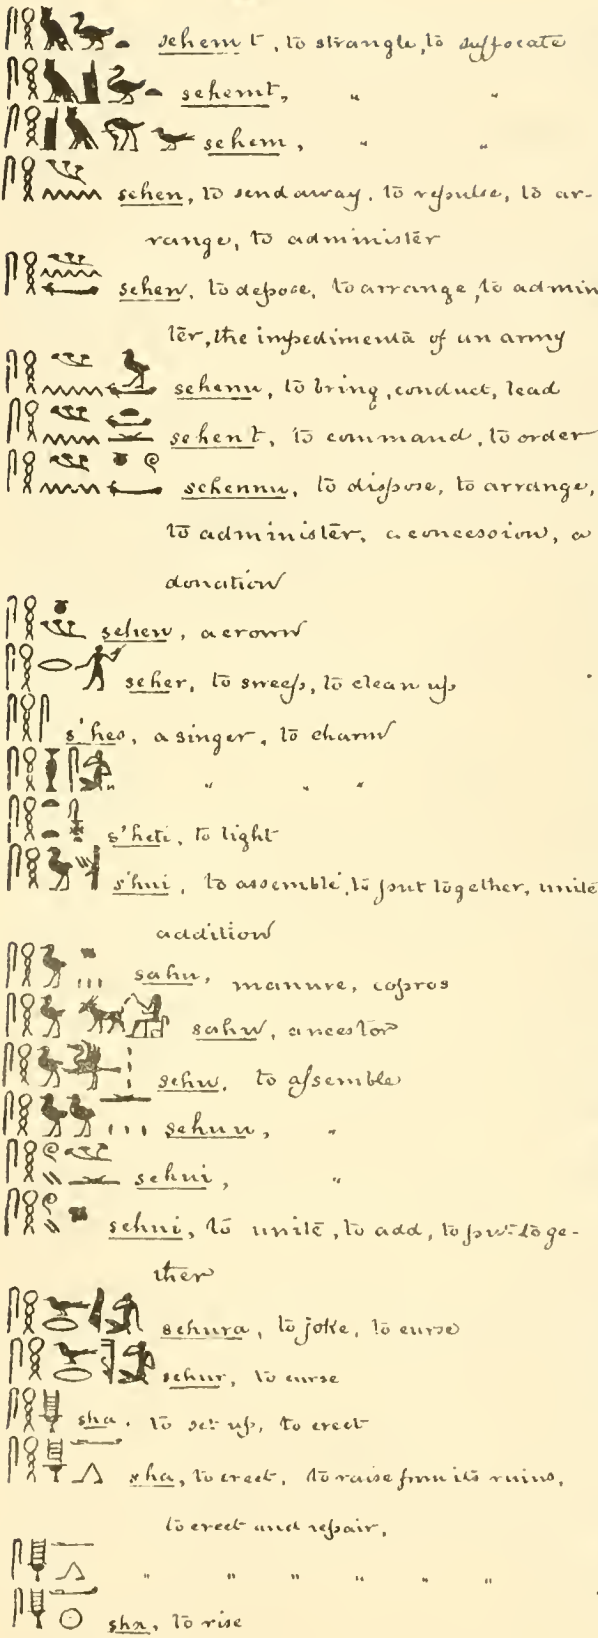 sehemt, to strangle, to suffocate
sehemt, " "
sehem, " "
sehen, to send away, to repulse, to ar-
range, to administer
sehen, to depose, to arrange, to admin
ter, the impedimenta of an army
sehenu, to bring, conduct, lead
sehent, to command, to order
sehennu, to dispose, to arrange,
to administer, a concession, a
donation
sehen, a crown
seher, to sweep, to clean up
s'hes, a singer, to charm
" " "
s'heti, to light
s'hui, to assemble, to put together, unite
addition
sahu, manure, copros
sahu, ancestor
sehu, to assemble
sehuu, "
sehui, "
sehui, to unite, to add, to put toge-
ther
sehura, to joke, to curse
sehur, to curse
sha, to set up, to erect
sha, to erect, to raise from its ruins,
to erect and repair,
" " " " " "
sha, to rise